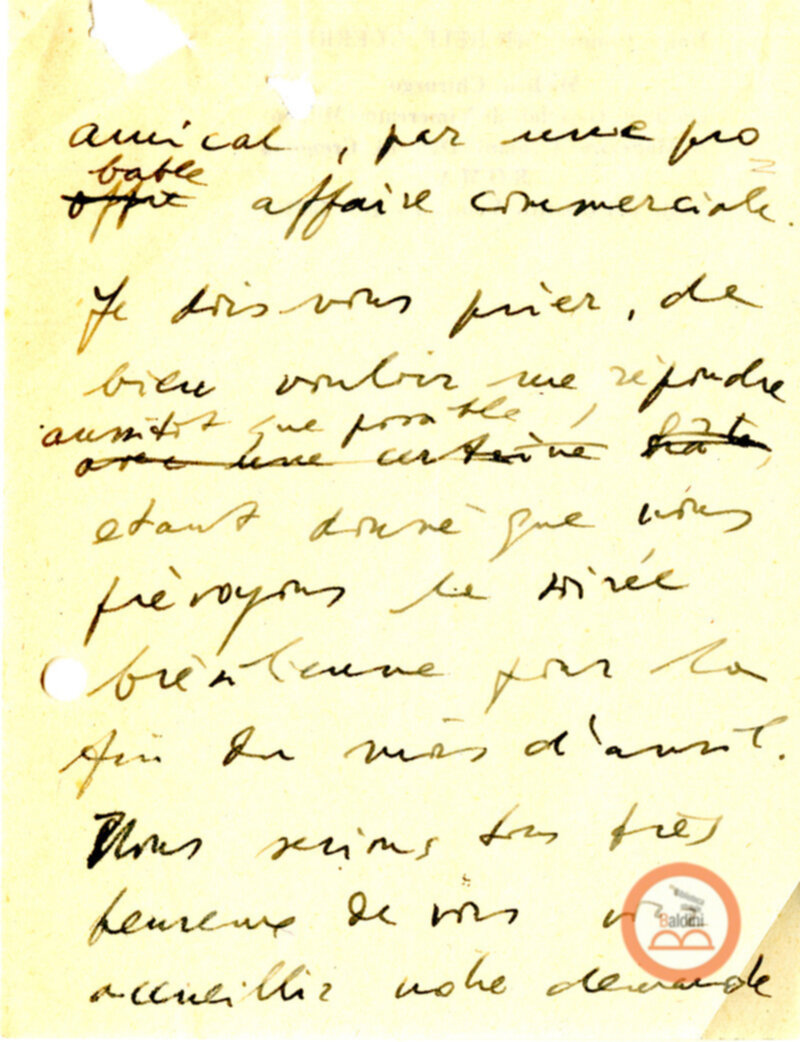 amical, par une pro
bable
offre affaire commerciale.
Je dois vous prier, de
bien vouloir me répondre
aussitôt que possible,
avec une certaine hâte,
etant donné que nous
prévoyons la soirée
brésilienne pour la
fin du mois d'avril.
Nous serions tous très
heureux de vous
accueillir notre demande
Biblioteca
Baldini